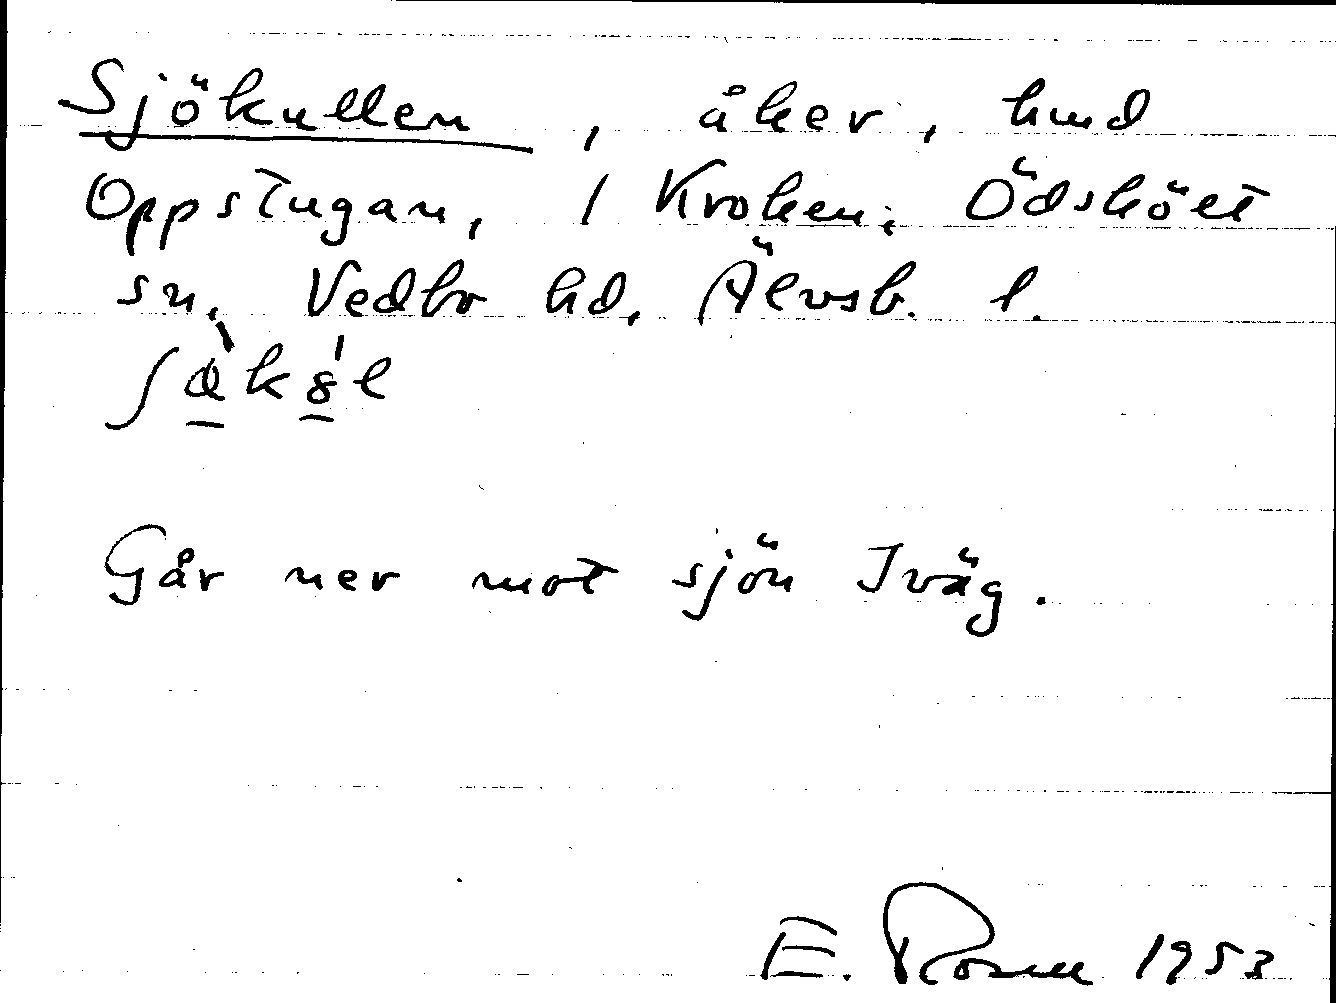 Sjökullen, åker, hmd
Oppstugan, 1 Kroken, Ödskölt
sn, Vedbo hd, Älvsb. l.
Går ner mot sjön Iväg.
E. Rosell 1953